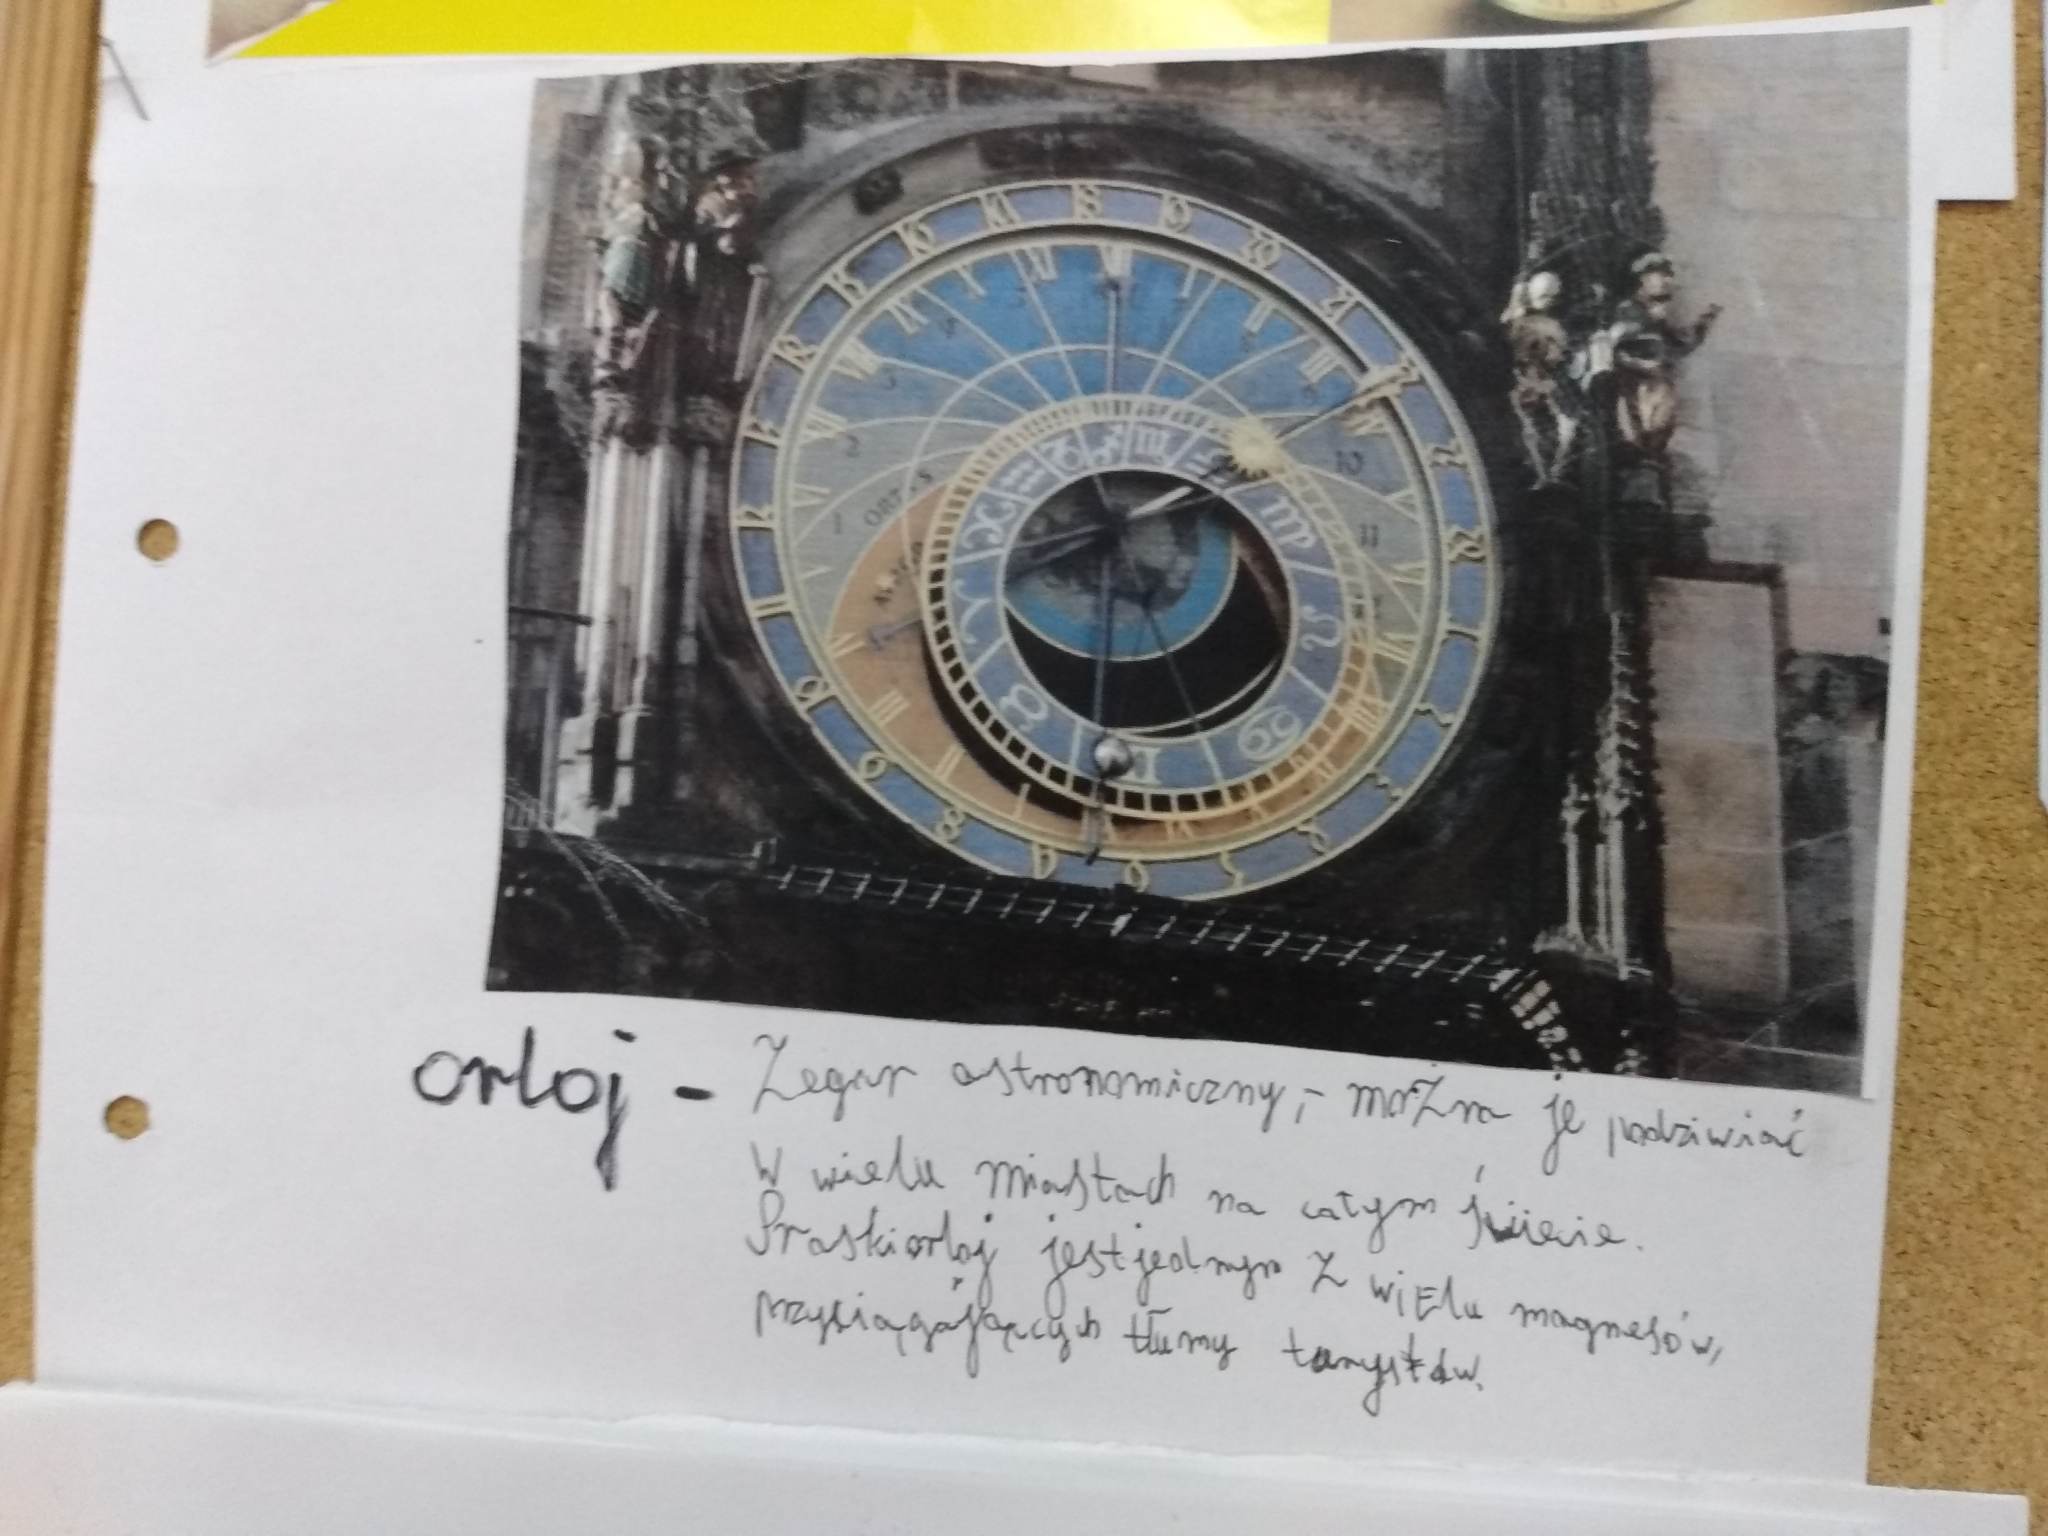 orloj - Zegar astronomiczny,- można je podziwiać
w wielu miastach na całym świecie.
Praski orloj jest jednym z wielu magnesów,
przyciągających tłumy turystów.